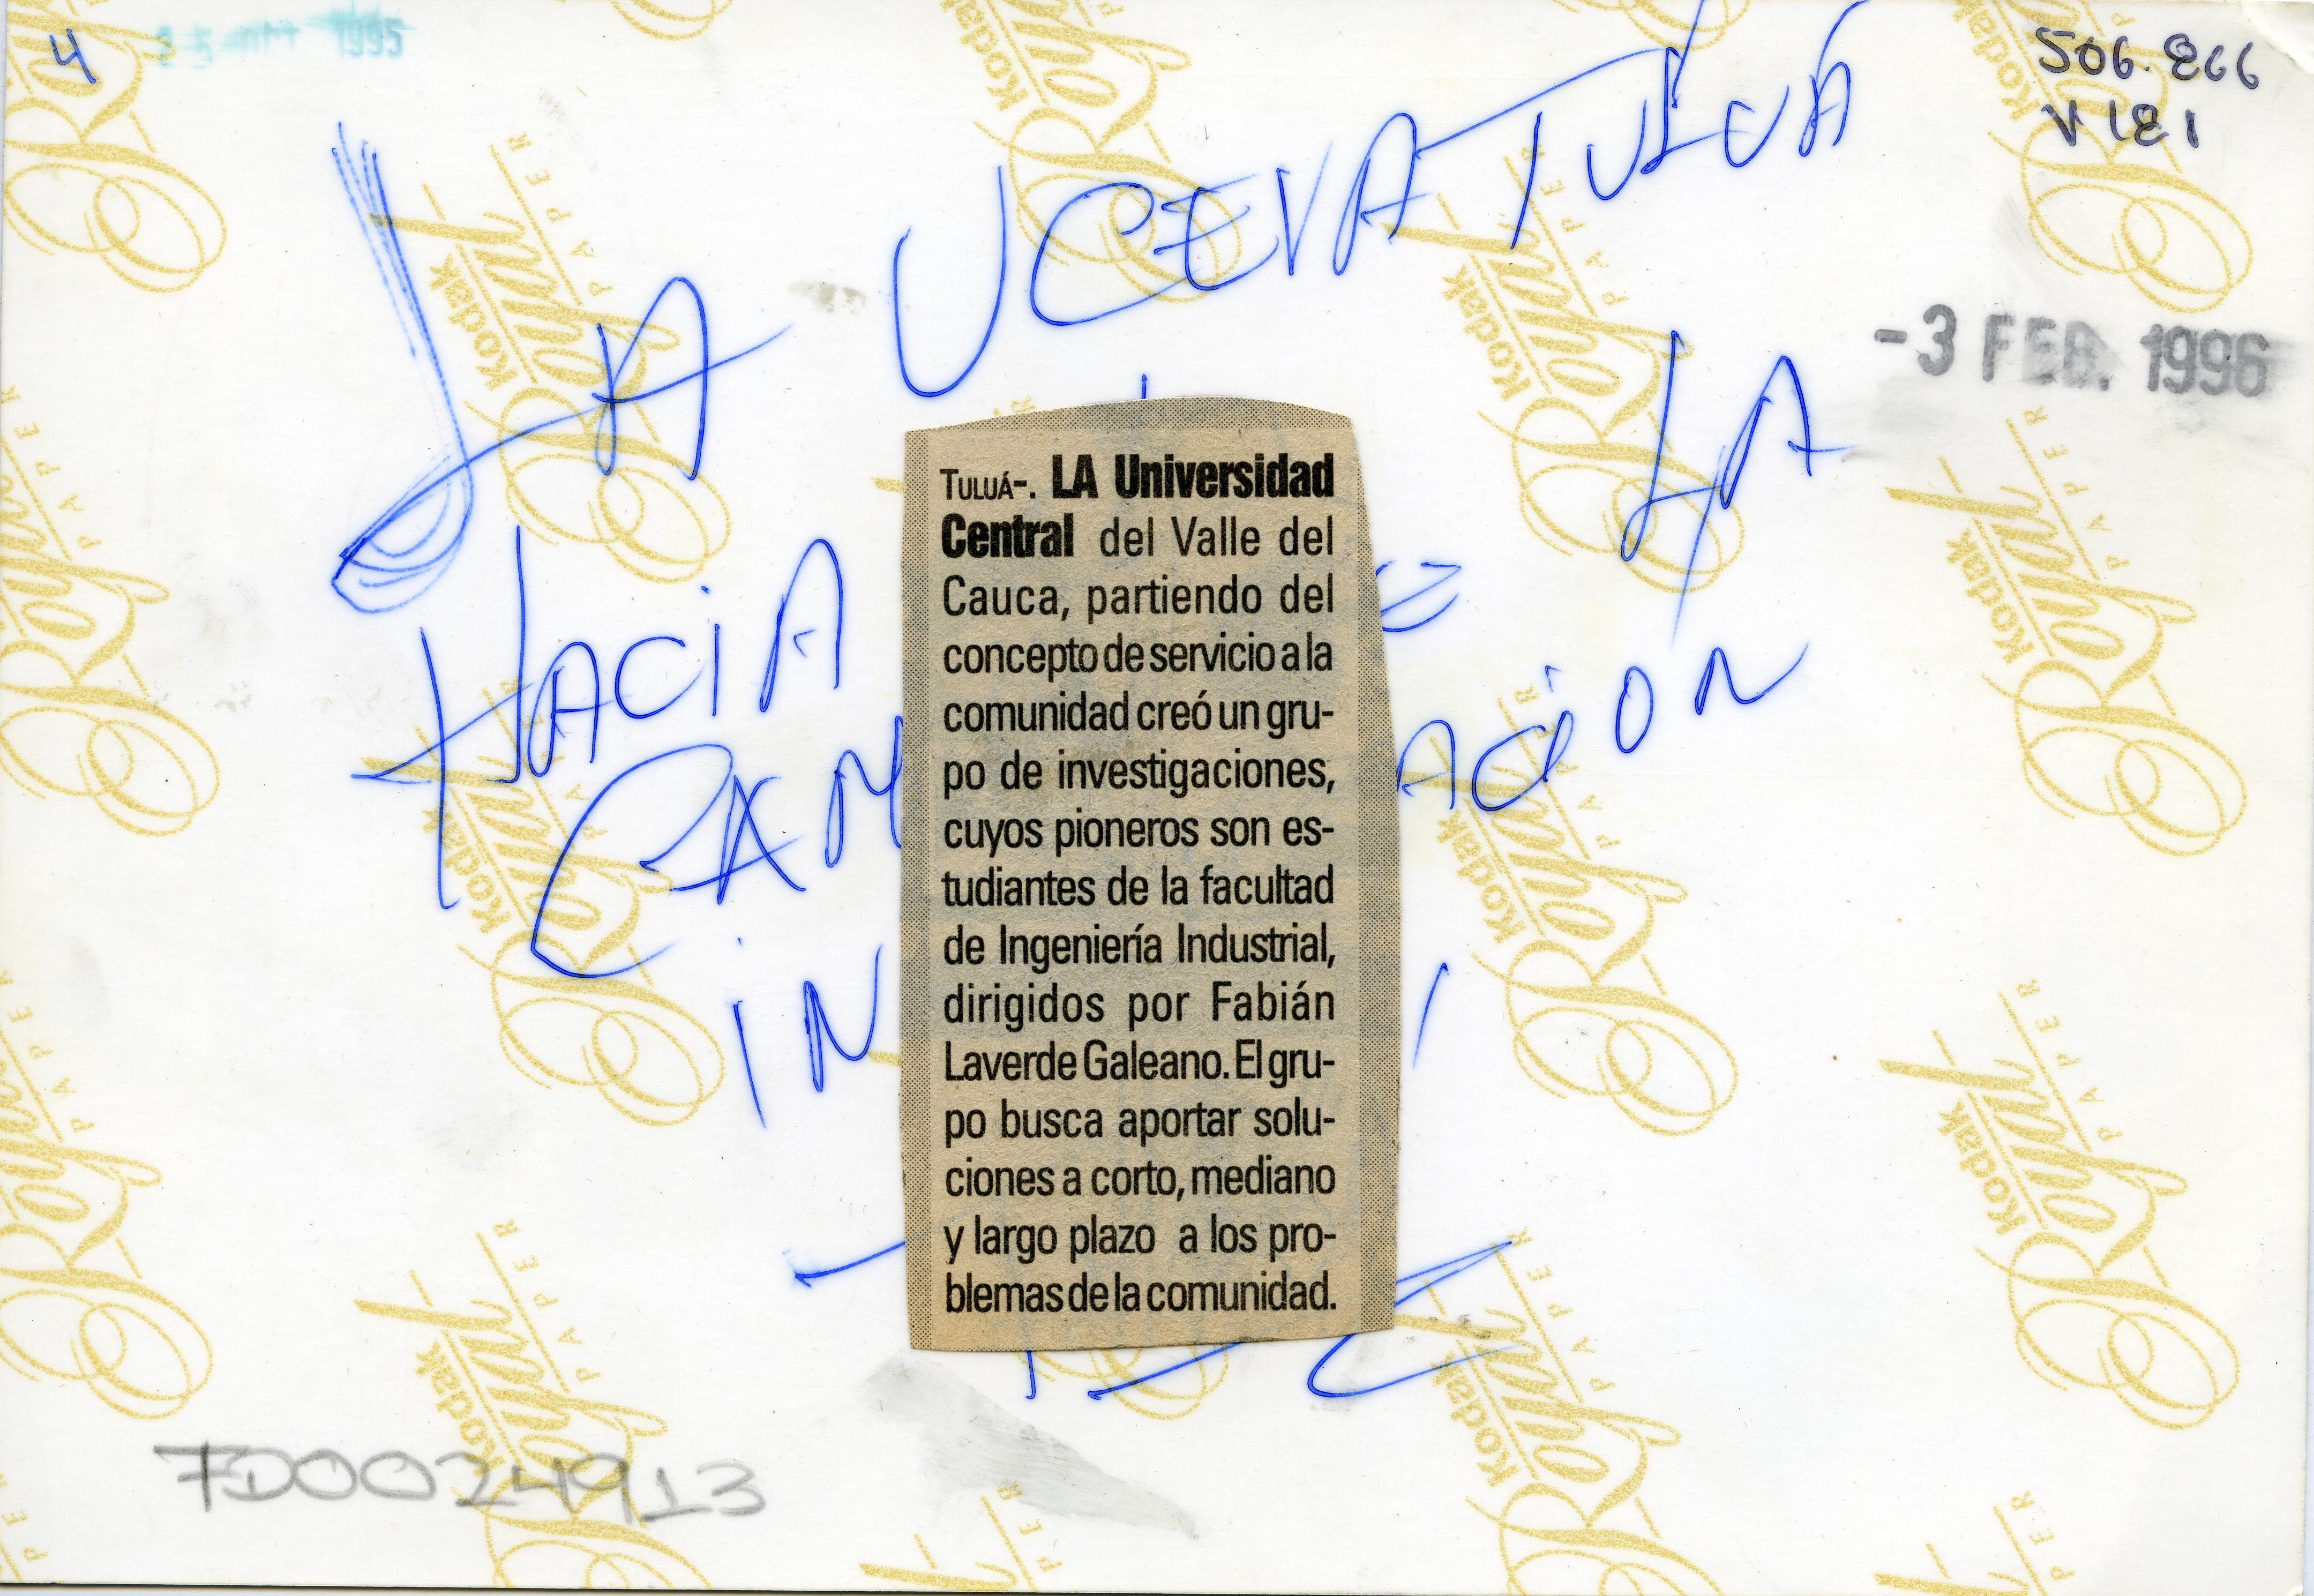 4
1995
506.866
V181
-3 FEB. 1996
LA UCEVA TULUA
HACIA LA
IN
TULUÁ-. LA Universidad
Central del Valle del
Cauca, partiendo del
concepto de servicio a la
comunidad creó un gru-
po de investigaciones,
cuyos pioneros son es-
tudiantes de la facultad
de Ingeniería Industrial,
dirigidos por Fabián
Laverde Galeano. El gru-
po busca aportar solu-
ciones a corto, mediano
y largo plazo a los pro-
blemas de la comunidad.
7D0024913
Kodak
Royal
PAPER